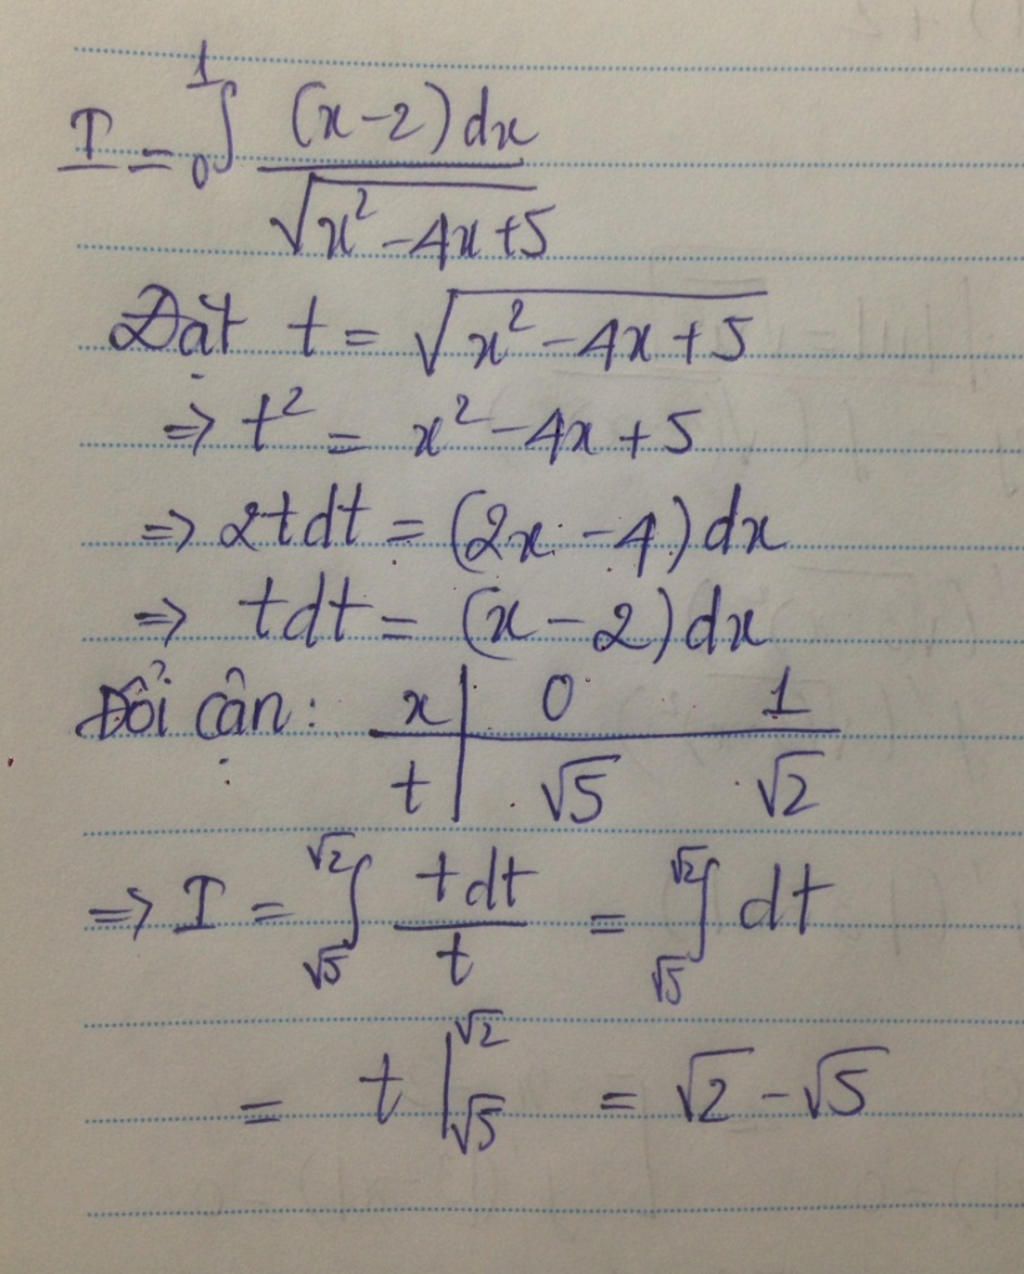 I = ∫₀¹ (x-2)dx / √(x²-4x+5)
Đặt t = √(x²-4x+5)
⇒ t² = x²-4x+5
⇒ 2tdt = (2x-4)dx
⇒ tdt = (x-2)dx
Đổi cận: x | 0 1
t | √5 √2
⇒ I = ∫_{√5}^{√2} tdt / t = ∫_{√5}^{√2} dt
= t |_{√5}^{√2} = √2 - √5